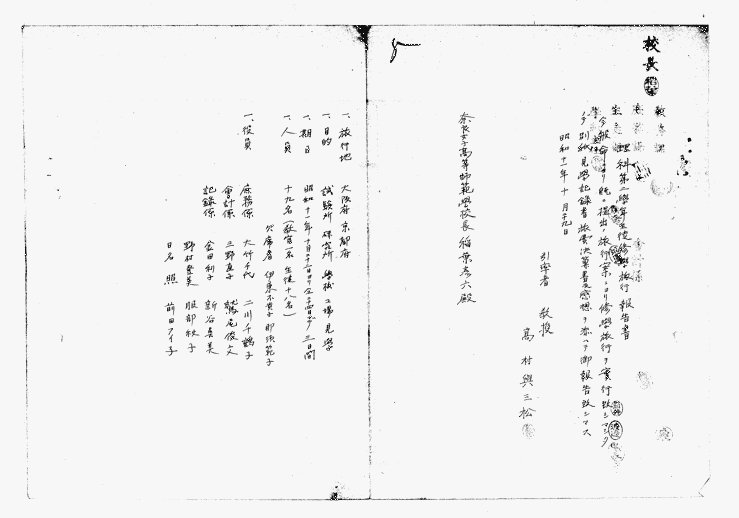 校長
理科第二學年生徒修學旅行報告書
今般命ニヨリ既ニ提出ノ旅行案ニヨリ修學旅行ヲ實行致シマシタ
別紙見學記録書旅費決算書及感想ヲ添ヘテ御報告致シマス
昭和十一年十月十九日
引率者 教授
高村與三松
奈良女子高等師範學校長 稲葉彦六殿
一、旅行地 大阪府 京都府
一、目的 試驗所 研究所 學校 工場見學
一、期日 昭和十一年十月十二日ヨリ全十四日マデ三日間
一、人員 十九名(教官一名 生徒十八名)
欠席者 伊東不二子 那須範子
一、役員
庶務係 大竹千代 二川千鶴子
會計係 三野直子 鷲尾俊文
記録係 金田利子 新谷喜美
野村登美 服部秋子
日名照 前田アイ子